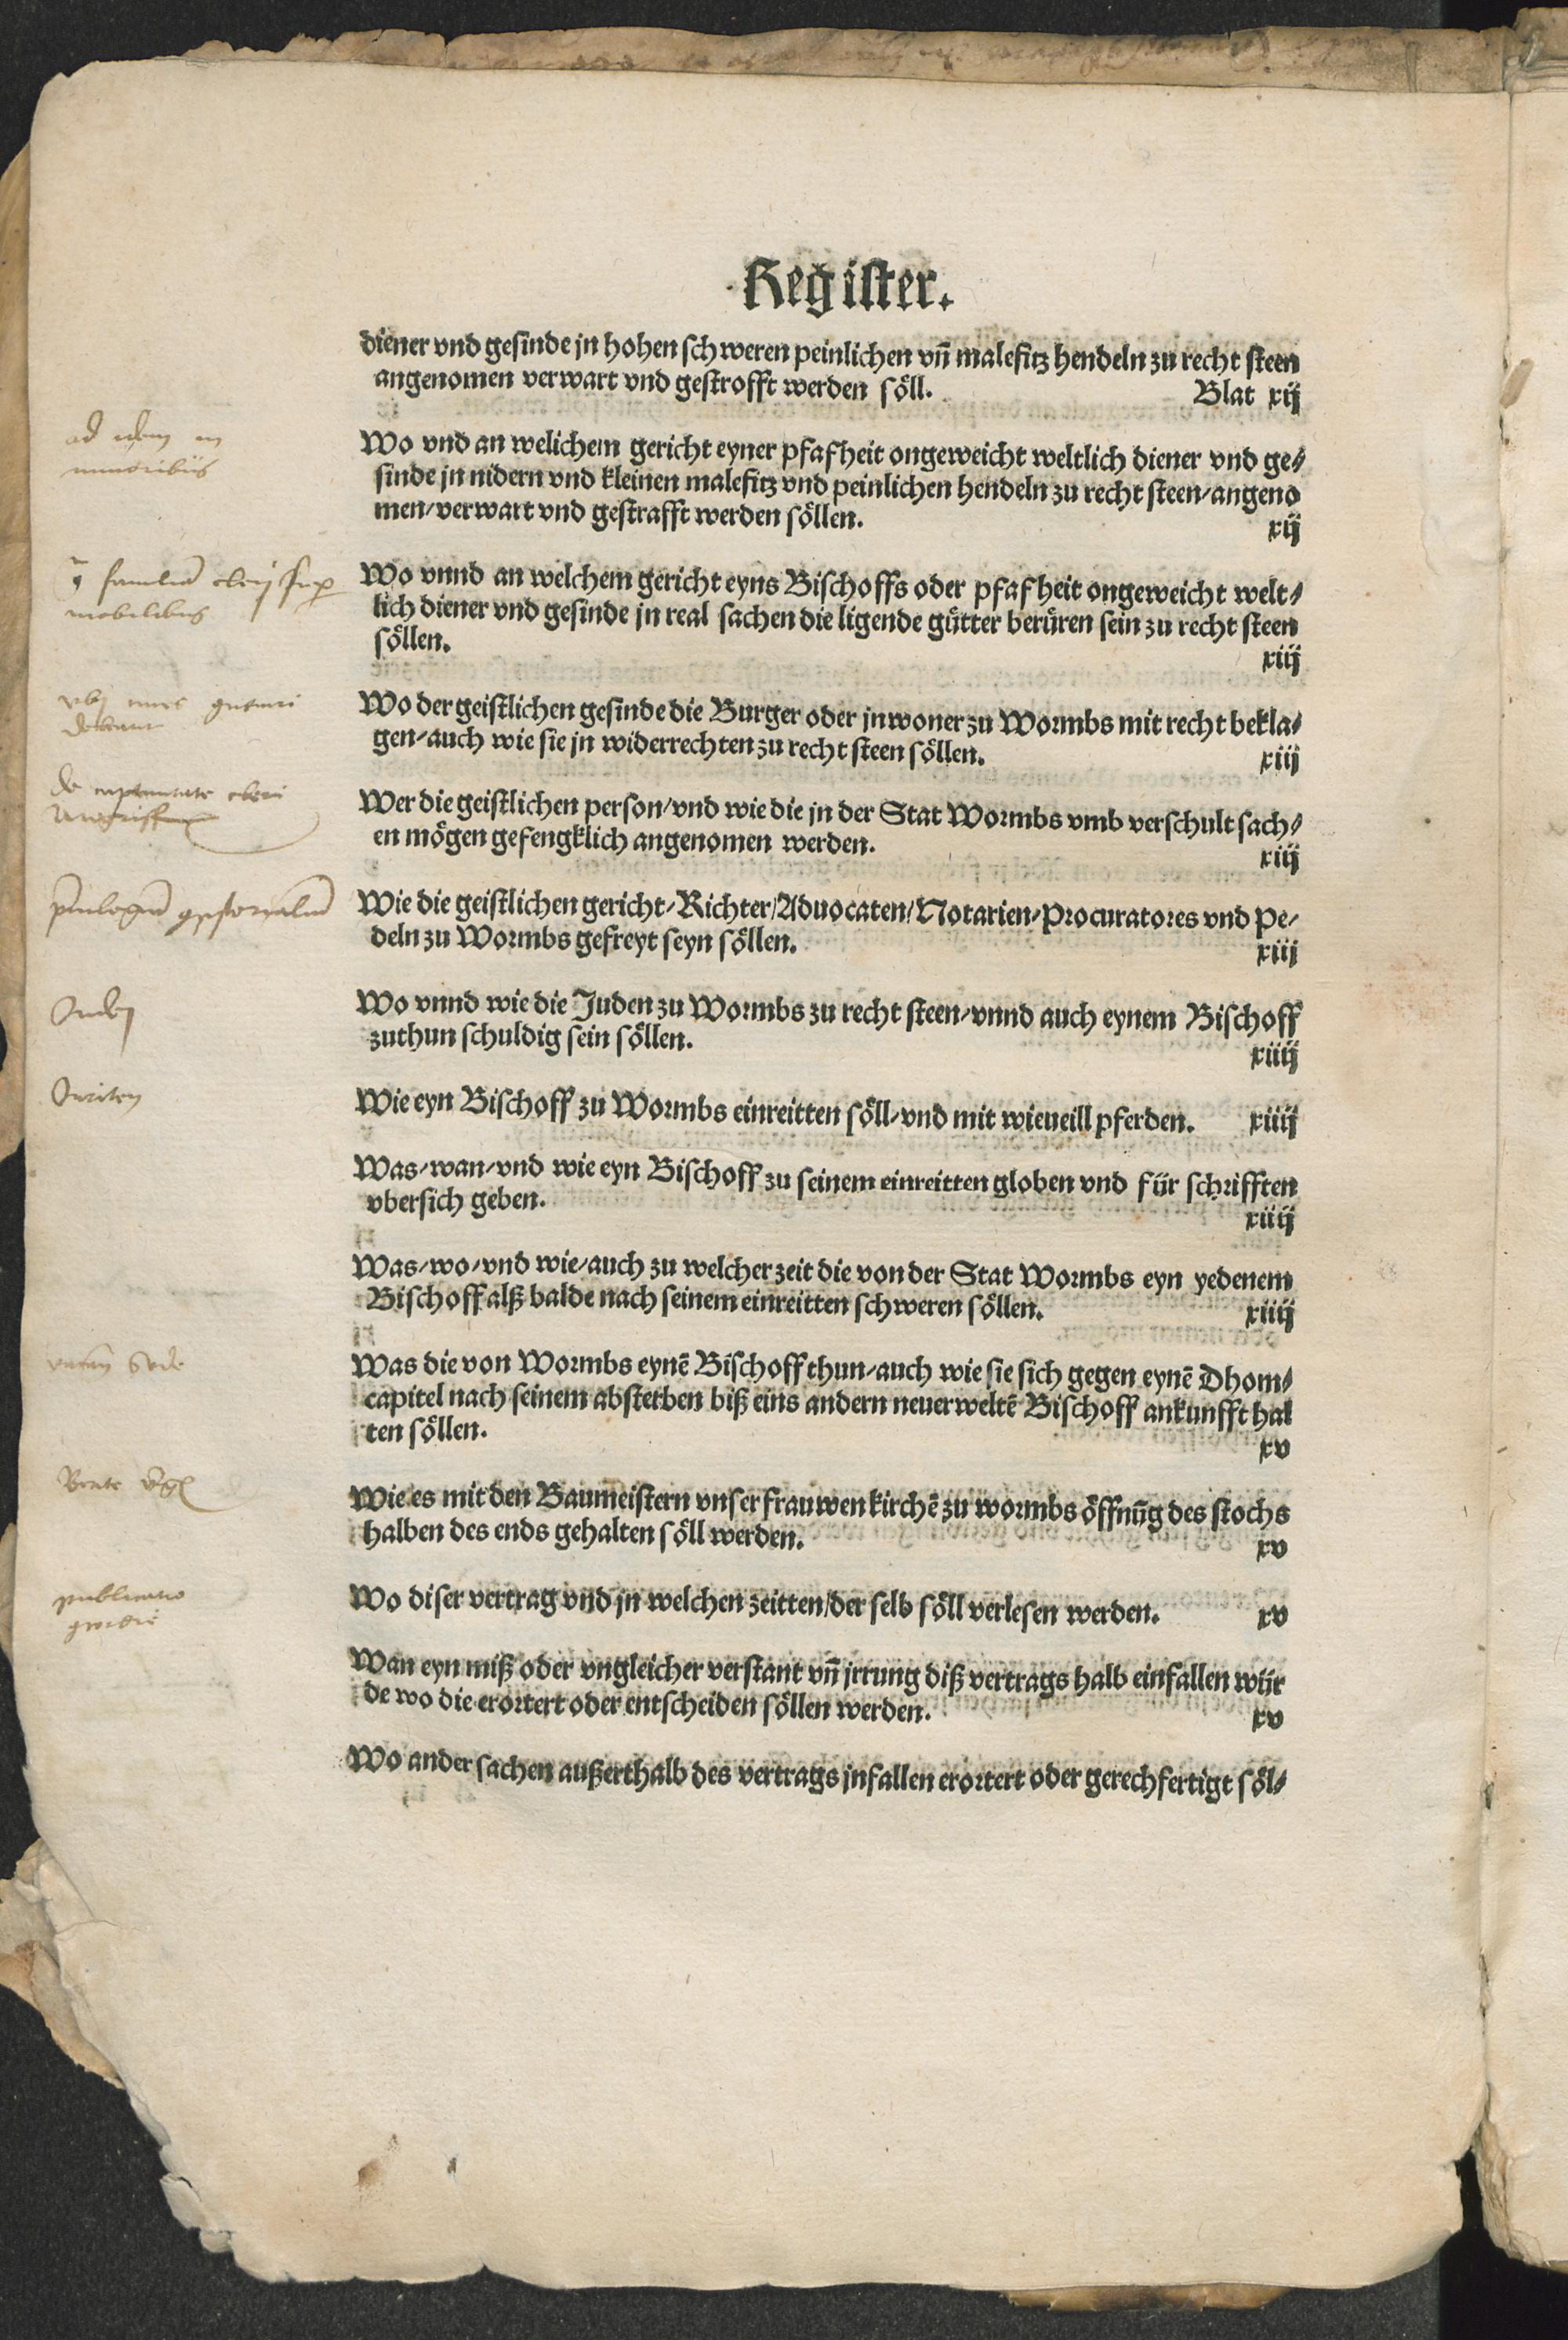 Register.
diener vnd gesinde jn hohen schweren peinlichen vn̄ malefitz hendeln zu recht steen
angenomen verwart vnd gestrofft werden söll. Blat xij
ad idem in
minoribus
Wo vnd an welichem gericht eyner pfafheit ongeweicht weltlich diener vnd ge/
sinde jn nidern vnd kleinen malefitz vnd peinlichen hendeln zu recht steen/angeno
men/verwart vnd gestrafft werden söllen. xij
mobilibus
Wo vnnd an welchem gericht eyns Bischoffs oder pfafheit ongeweicht welt/
lich diener vnd gesinde jn real sachen die ligende gütter berüren sein zu recht steen
söllen. xiij
debeant
Wo der geistlichen gesinde die Burger oder jnwoner zu Wormbs mit recht bekla/
gen/auch wie sie jn widerrechten zu recht steen söllen. xiij
Wer die geistlichen person/vnd wie die jn der Stat Wormbs vmb verschult sach/
en mögen gefengklich angenomen werden. xiij
Wie die geistlichen gericht/Richter/Aduocaten/Notarien/Procuratores vnd Pe/
deln zu Wormbs gefreyt seyn söllen. xiij
Juden
Wo vnnd wie die Juden zu Wormbs zu recht steen/vnnd auch eynem Bischoff
zuthun schuldig sein söllen. xiiij
Inriten
Wie eyn Bischoff zu Wormbs einreitten söll/vnd mit wieueill pferden. xiiij
Was/wan/vnd wie eyn Bischoff zu seinem einreitten globen vnd für schrifften
vbersich geben. xiiij
Was/wo/vnd wie/auch zu welcher zeit die von der Stat Wormbs eyn yedenem
Bischoff alß balde nach seinem einreitten schweren söllen. xiiij
Was die von Wormbs eynē Bischoff thun/auch wie sie sich gegen eynē Dhom/
capitel nach seinem absterben biß eins andern neuerweltē Bischoff ankunfft hal
ten söllen. xv
Wie es mit den Baumeistern vnser frauwen kirchē zu wormbs öffnūg des stochs
halben des ends gehalten söll werden. xv
publicatio
Wo diser vertrag vnd jn welchen zeitten/der selb söll verlesen werden. xv
Wan eyn miß oder vngleicher verstant vn̄ jrrung diß vertrags halb einfallen wür
de wo die erortert oder entscheiden söllen werden. xv
Wo ander sachen außerthalb des vertrags jnfallen erortert oder gerechfertigt söl/